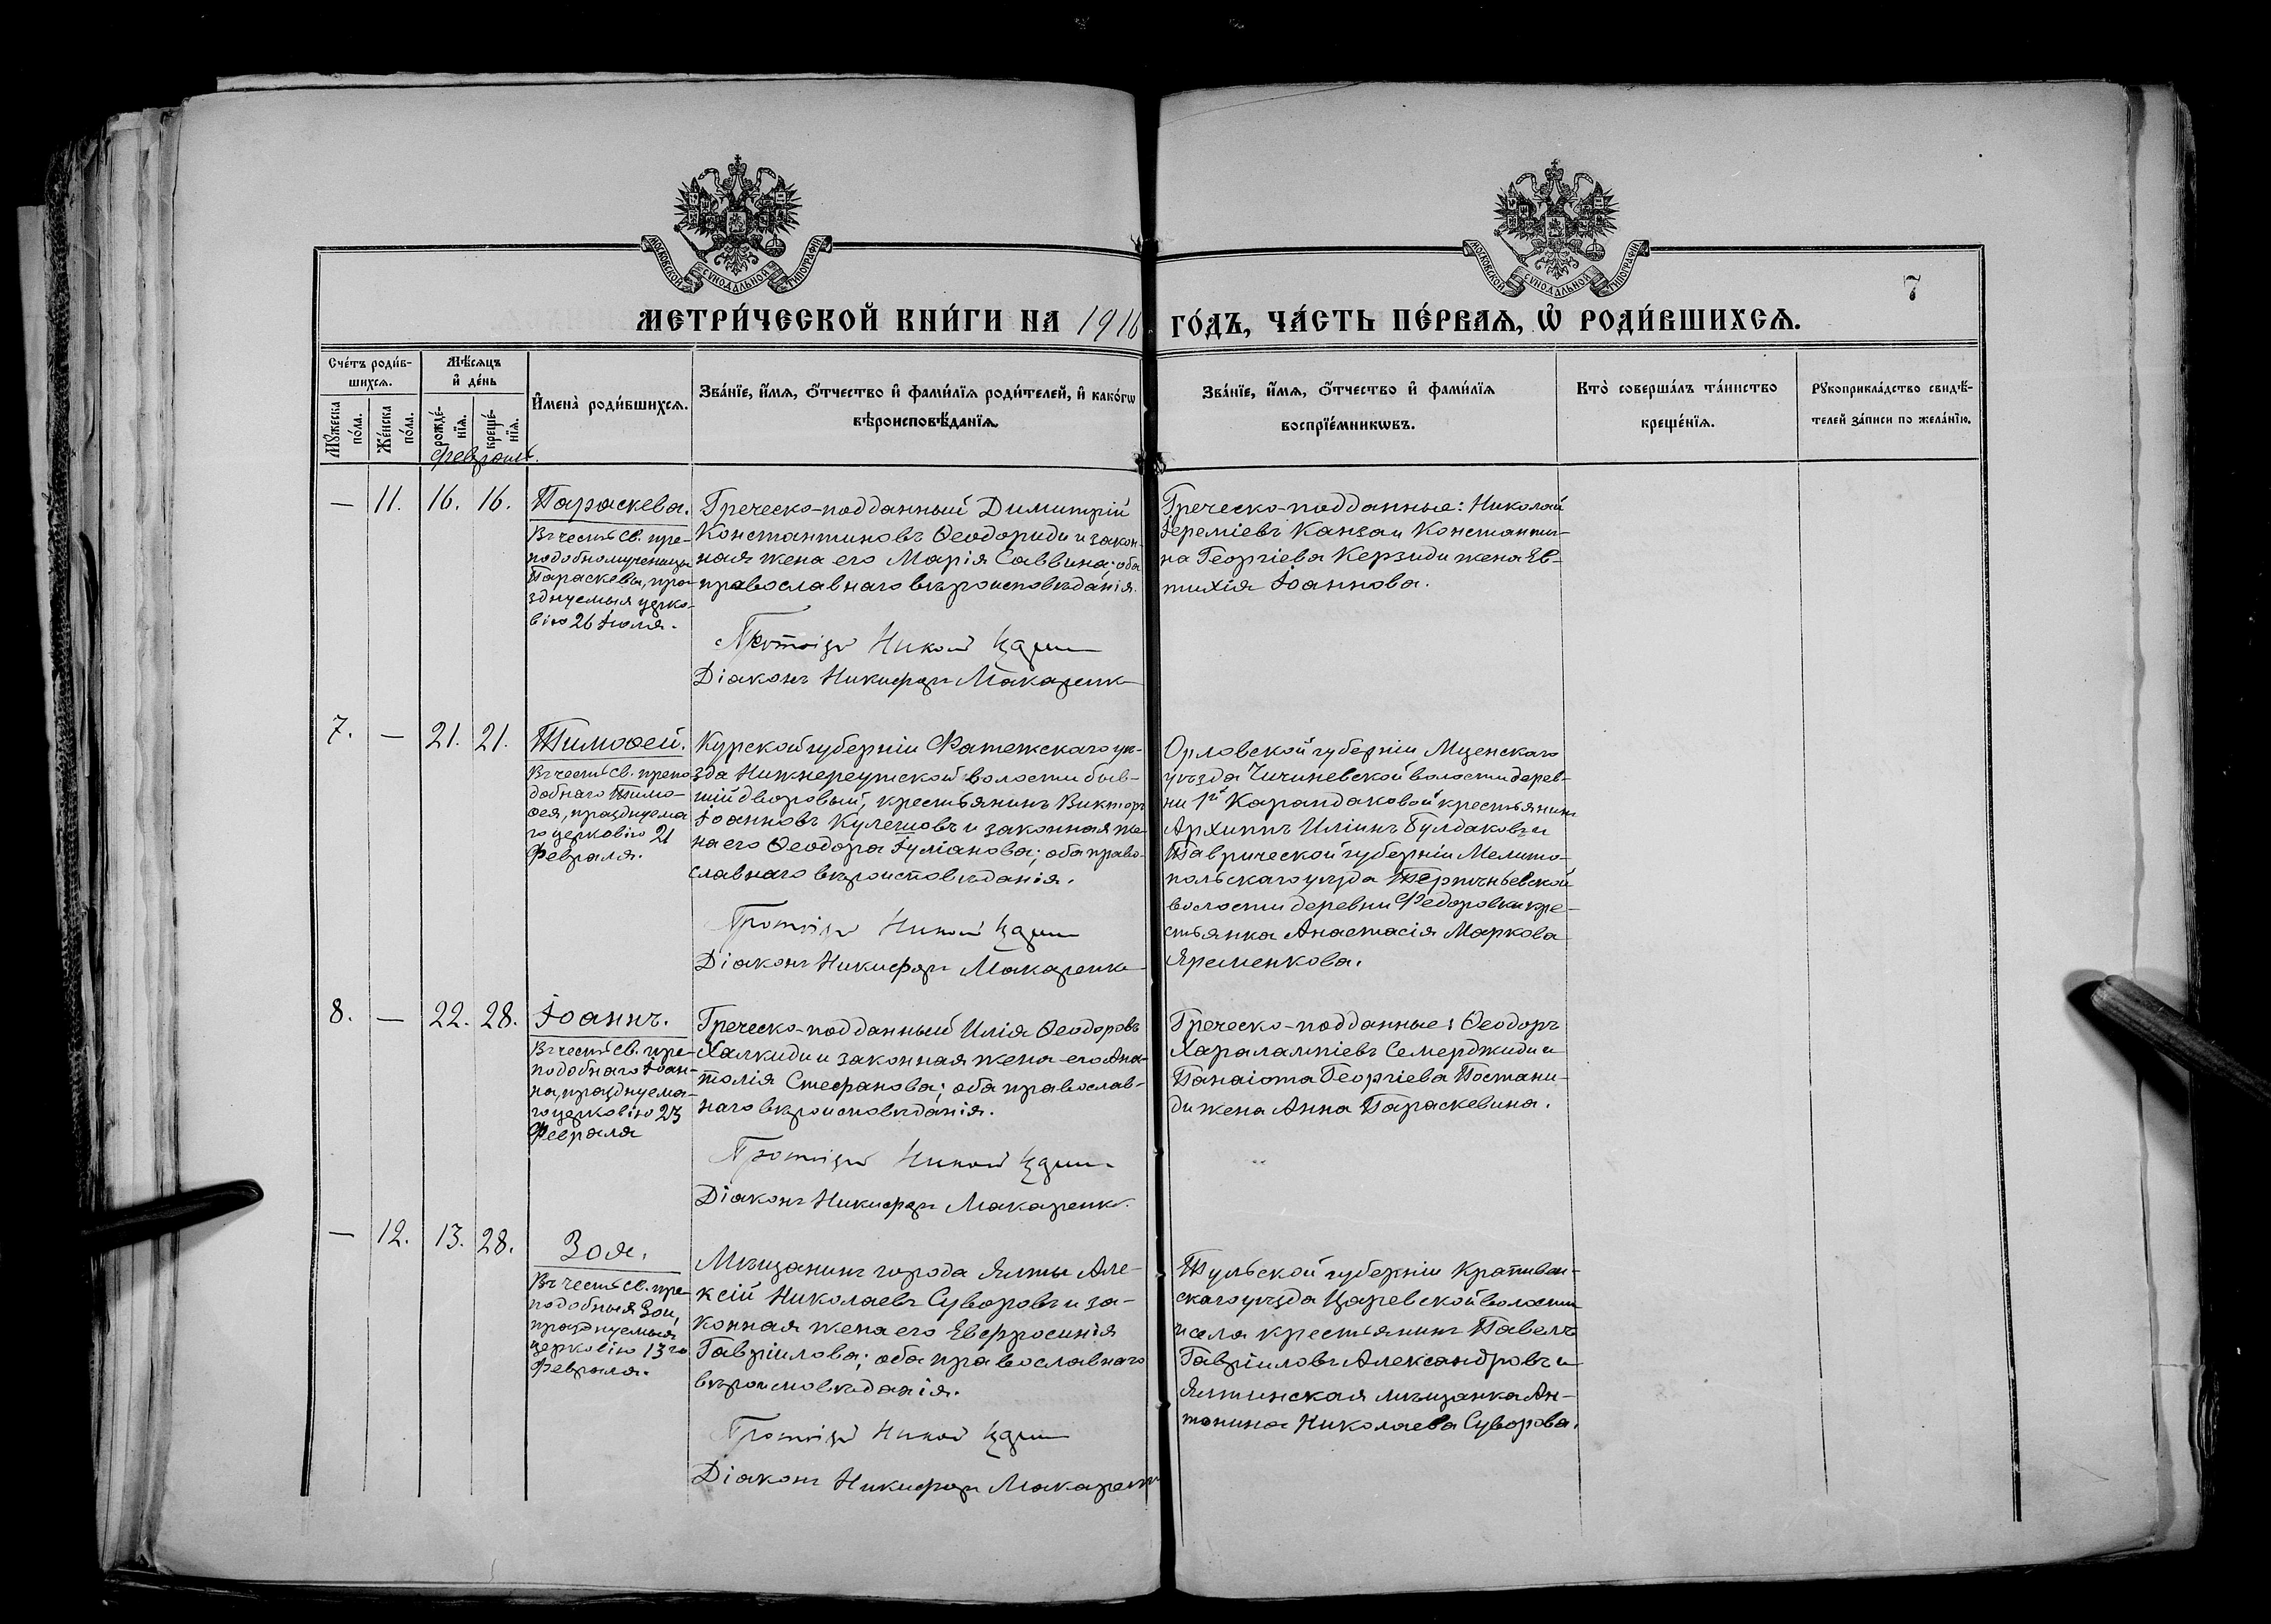 МОСКОВСКОЙ СѴНОДАЛЬНОЙ ТИПОГРАФІИ
МОСКОВСКОЙ СѴНОДАЛЬНОЙ ТИПОГРАФІИ
7
МЕТРИ́ЧЕСКОЙ КНИ́ГИ НА 1916 ГО́ДЪ, ЧА́СТЬ ПЕ́РВАЯ, Ѡ҆ РОДИ́ВШИХСѦ.
Сче́тъ роди́в-
шихсѧ.
Мꙋ́жеска
по́ла.
Же́нска
по́ла.
Мѣ́сѧцъ
и҆ де́нь
рожде́-
нїѧ.
креще́-
нїѧ.
И҆мена̀ роди́вшихсѧ.
Зва́нїе, и҆́мѧ, ѻ҆́тчество и҆ фами́лїѧ роди́телей, и҆ како́гѡ
вѣроисповѣ́данїѧ.
Зва́нїе, и҆́мѧ, ѻ҆́тчество и҆ фами́лїѧ
воспрїе́мникѡвъ.
Кто̀ соверша́лъ та́инство
креще́нїѧ.
Рꙋкоприкла́дство свидѣ́-
телей за́писи по жела́нїю.
Февраль.
— 11. 16. 16.
Параскева.
Въ честь св. пре-
подобномученицы
Параскевы, пра-
зднуемыя церко-
вію 26 Іюля.
Греческо-подданный Димитрій
Константиновъ Ѳеодориди и закон-
ная жена его Марія Саввина; оба
православнаго вѣроисповѣданія.
Діаконъ Никифоръ Макаренк
Греческо-подданные: Николай
Іереміевъ Канзаи Константи-
на Георгіева Керзиди жена Ев-
тихія Іоаннова.
7. — 21. 21.
Тимоѳей.
Въ честь св. препо-
добнаго Тимо-
ѳея, празднуема
го церковію 21
Февраля.
Курской губерніи Фатежскаго уѣ-
зда Нижнереутской волости быв-
шій дворовый, крестьянинъ Викторъ
Іоанновъ Кулешовъ и законная же-
на его Ѳеодора Іуліанова; оба право-
славнаго вѣроисповѣданія.
Діаконъ Никифоръ Макаренк
Орловской губерніи Мценскаго
уѣзда Чичиневской волости дерев-
ни 1й Карандаковой крестьянинъ
Архиппъ Иліинъ Булдаковъ и
Таврической губерніи Мелито-
польскаго уѣзда Терпѣньевской
волости деревни Федоровки кре-
стьянка Анастасія Маркова
Яременкова.
8. — 22. 28.
Іоаннъ.
Въ честь св. пре-
подобнаго Іоан-
на, празднуема-
го церковію 23
Февраля
Греческо-подданный Илія Ѳеодоровъ
Халкиди и законная жена его Ана-
толія Стефанова; оба православ-
наго вѣроисповѣданія.
Діаконъ Никифоръ Макаренк
Греческо-подданные: Ѳеодоръ
Харалампіевъ Семерджиди и
Панаіота Георгіева Постани-
ди жена Анна Параскевина.
— 12. 13. 28.
Зоя.
Въ честь св. пре-
подобныя Зои,
празднуемыя
церковію 13го
Февраля.
Мѣщанинъ города Ялты Але-
ксій Николаевъ Суворовъ и за-
конная жена его Евфросинія
Гавріилова; оба православнаго
вѣроисповѣданія.
Діаконъ Никифоръ Макаренк
Тульской губерніи Крапивен-
скаго уѣзда Царевской волости
и села крестьянинъ Павелъ
Гавріиловъ Александровъ и
Ялтинская мѣщанка Ан-
тонина Николаева Суворова.